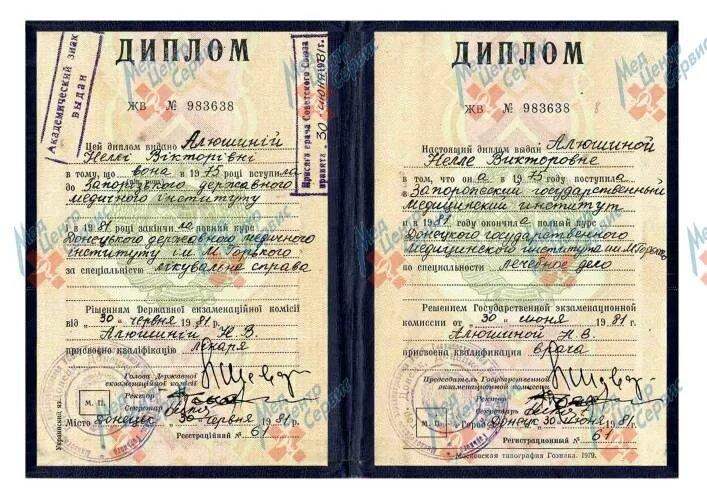 Академический знак
выдан
Присяга врача Советского Союза
принята „30“ июня 1981г.
ДИПЛОМ
ЖВ № 983638
Цей диплом видано Алюшиній
Неллі Вікторівні
в тому, що вона в 1975 році вступила
до Запорізького державного
медичного інституту
і в 1981 році закінчила повний курс
Донецького державного медичного
інституту ім. М. Горького
за спеціальністю лікувальна справа
Рішенням Державної екзаменаційної комісії
від „30“ червня 1981 р.
Алюшиній Н.В.
присвоєно кваліфікацію лікаря
Голова Державної
екзаменаційної комісії
Ректор
Секретар
М. П.
Місто Донецьк „30“ червня 1981 р.
Реєстраційний № 61
Украинский яз.
ДИПЛОМ
ЖВ № 983638
Настоящий диплом выдан Алюшиной
Нелле Викторовне
в том, что она в 1975 году поступила
в Запорожский государственный
Медицинский институт
и в 1981 году окончила полный курс
Донецкого государственного
Медицинского института им. М. Горького
по специальности лечебное дело
Решением Государственной экзаменационной
комиссии от „30“ июня 1981 г.
Алюшиной Н.В.
присвоена квалификация врача
Председатель Государственной
экзаменационной комиссии
Ректор
Секретарь
М. П.
Город Донецк „30“ июня 1981 г.
Регистрационный № 61
Московская типография Гознака. 1979.
Мед Центр Сервис